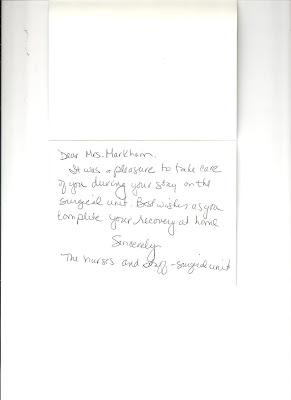 Dear Mrs. Markham,
It was a pleasure to take care
of you during your stay on the
surgical unit. Best wishes as you
complete your recovery at home
Sincerely,
The nurses and staff - surgical unit